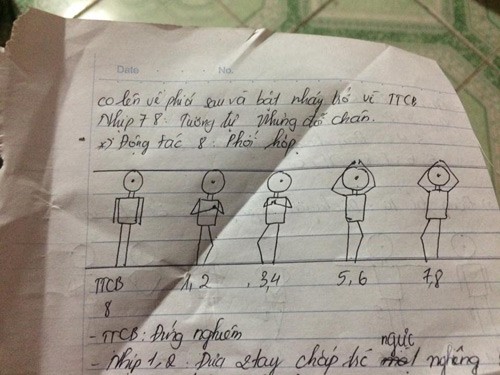 Date No.
co lên về phía sau và bật nhảy trở về TTCB
Nhịp 7 8: Tương tự nhưng đổi chân.
*) Động tác 8: Phối hợp
TTCB 1, 2 3,4 5,6 7,8
8
- TTCB: Đứng nghiêm
ngực
- Nhịp 1,2: Đưa 2 tay chắp trc nghiêng